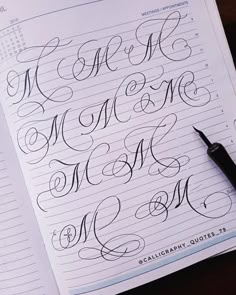 MEETINGS / APPOINTMENTS
M M
M M M
M M M
M M
M M
@CALLIGRAPHY_QUOTES_78